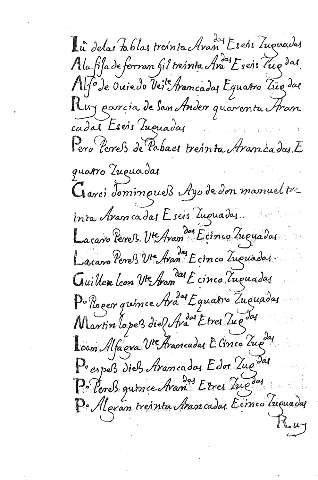 Iũ delas tablas treinta Aran^das E seis Zuguadas
Ala fija de ferran Gil treinta Ara^das E seis Zug^das
Alf^o de Ouiedo Ve^te Arancadas E quatro Zug^das
Ruy garcia de San Ander quarenta Aran
cadas E seis Zuguadas
Pero Pereß de Pabaes treinta Arancadas. E
quatro Zuguadas
Garci domingueß Ayo de don manuel tre-
inta Arancadas E seis Zuguadas..
Laçaro Pereß V^te Aran^das E cinco Zuguadas
Lacaro Pereß V^te Aran^das E cinco Zuguadas.
Guillen leon V^te Aran^das E cinco Zuguadas
P^o Roger quince Ara^das E quatro Zuguadas
Martin lopeß dieß Ara^das E tres Zug^das
Ioan Alfagra V^te Arancadas E Cinco Zug^das
P^o espeß dieß Arancadas E dos Zug^das
P^o Pereß quince Aran^das E tres Zug^das
P^o Algran treinta Arancadas E cinco Zuguadas
Ruy